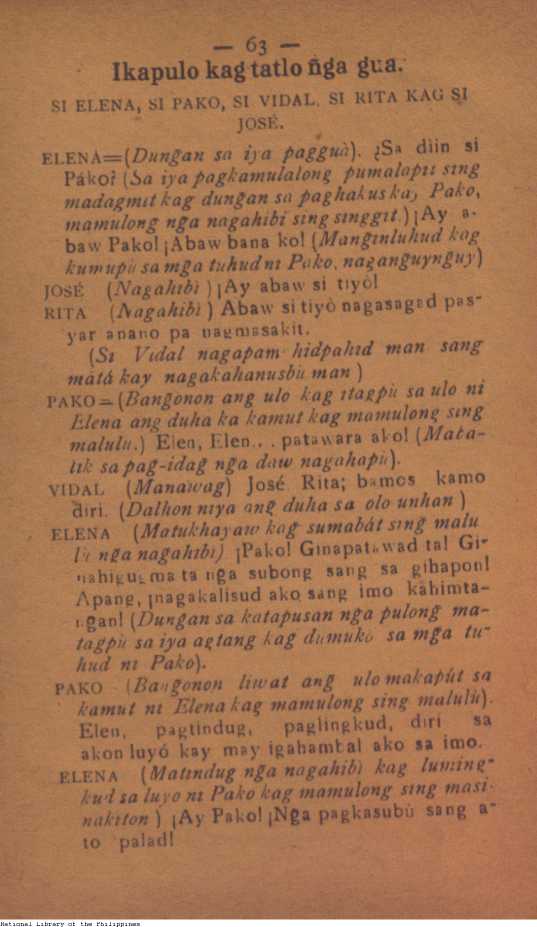 — 63 —
Ikapulo kag tatlo ñga gua.
SI ELENA, SI PAKO, SI VIDAL, SI RITA KAG SI
JOSÉ.
ELENA=(Dungan sa iya pagguà). ¿Sa diin si
Páko? (Sa iya pagkamulalong pumalapit sing
madagmit kag dungan sa paghakus kay Pako,
mamulong nga nagahibi sing singgit.) ¡Ay a-
baw Pako! ¡Abaw bana ko! (Manginluhud kag
kumupù sa mga tuhud ni Pako, naganguynguy)
JOSÉ (Nagahibì) ¡Ay abaw si tiyò!
RITA (Nagahibì) Abaw si tiyò nagasagad pas-
yar anano pa nagmasakit.
(Si Vidal nagapam hidpahid man sang
matá kay nagakahanusbù man)
PAKO=(Bangonon ang ulo kag itagpù sa ulo ni
Elena ang duha ka kamut kag mamulong sing
malulu.) Elen, Elen... patawara ako! (Mata-
lik sa pag-idag nga daw nagahapù).
VIDAL (Manawag) José. Rita; bamos kamo
diri. (Dalhon niya ang duha sa olo unhan)
ELENA (Matukhayaw kag sumabát sing malu
lù nga nagahibi) ¡Pako! Ginapatawad ta! Gi-
nahigugma ta nga subong sang sa gihapon!
Apang, ¡nagakalisud ako sang imo kahimta-
ngan! (Dungan sa katapusan nga pulong ma-
tagpù sa iya agtang kag dumukò sa mga tu-
hud ni Pako).
PAKO (Bangonon liwat ang ulo makapút sa
kamut ni Elena kag mamulong sing malulù).
Elen, pagtindug, paglingkud, diri sa
akon luyó kay may igahambal ako sa imo.
ELENA (Matindug nga nagahibì kag luming-
kud sa luyo ni Pako kag mamulong sing masi-
nakiton) ¡Ay Pako! ¡Nga pagkasubù sang a-
to palad!
National Library of the Philippines